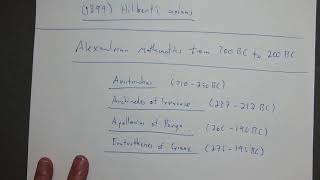 (1899) Hilbert's axioms
Alexandrian mathematics from 300 BC to 200 BC
Aristarchus (310 - 230 BC)
Archimedes of Syracuse (287 - 212 BC)
Apollonius of Perga (260 - 190 BC)
Eratosthenes of Cyrene (276 - 195 BC)